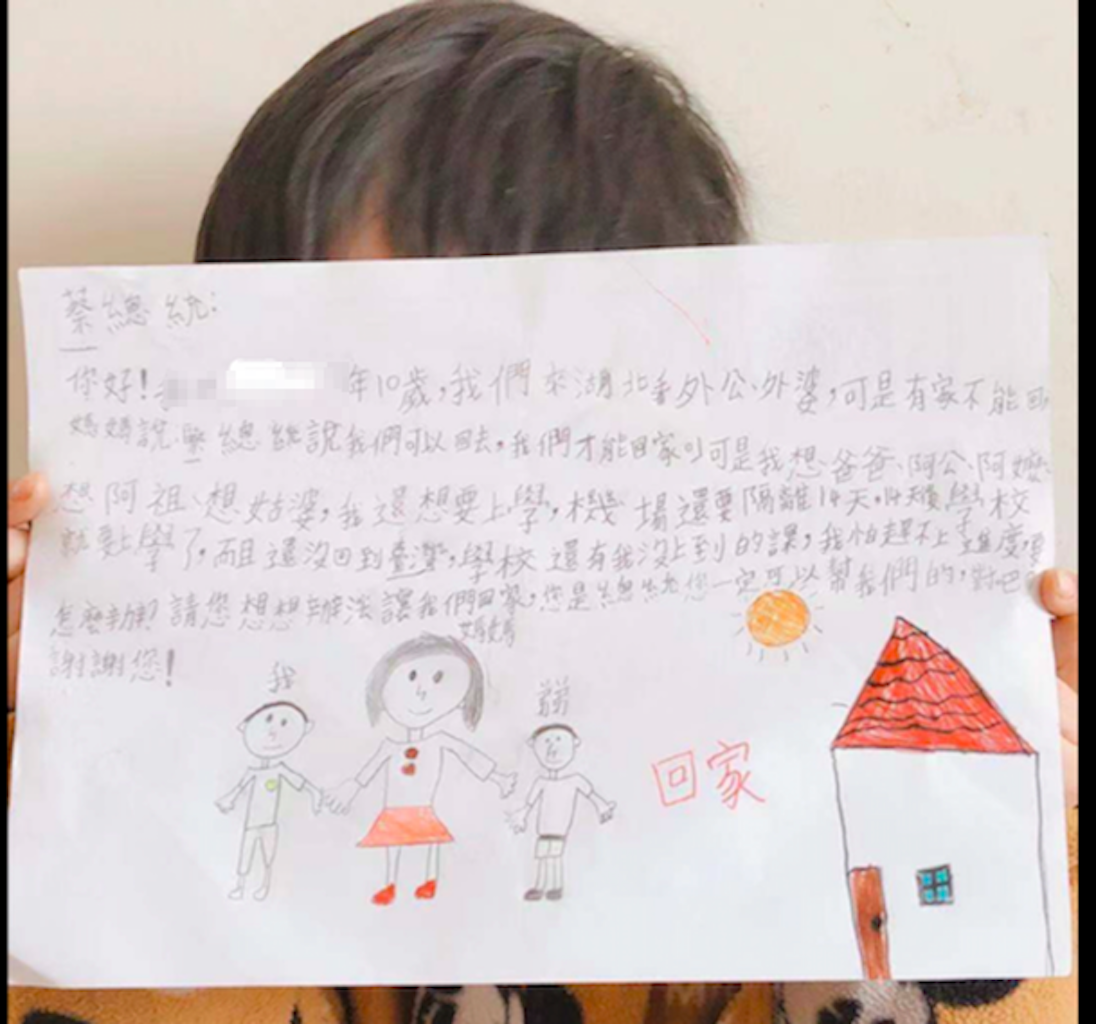 蔡總統:
你好! 年10歲,我們來湖北看外公、外婆,可是有家不能回,
媽媽說蔡總統說我們可以回去,我們才能回家,可是我想爸爸、阿公、阿嬤、
想阿祖、想姑婆,我還想要上學,機場還要隔離14天,14天後學校
就要上學了,而且還沒回到臺灣,學校還有我沒上到的課,我怕趕不上進度,要
怎麼辦?請您想想辦法讓我們回家,您是總統您一定可以幫我們的,對吧
謝謝您!
媽媽
我
弟弟
回家